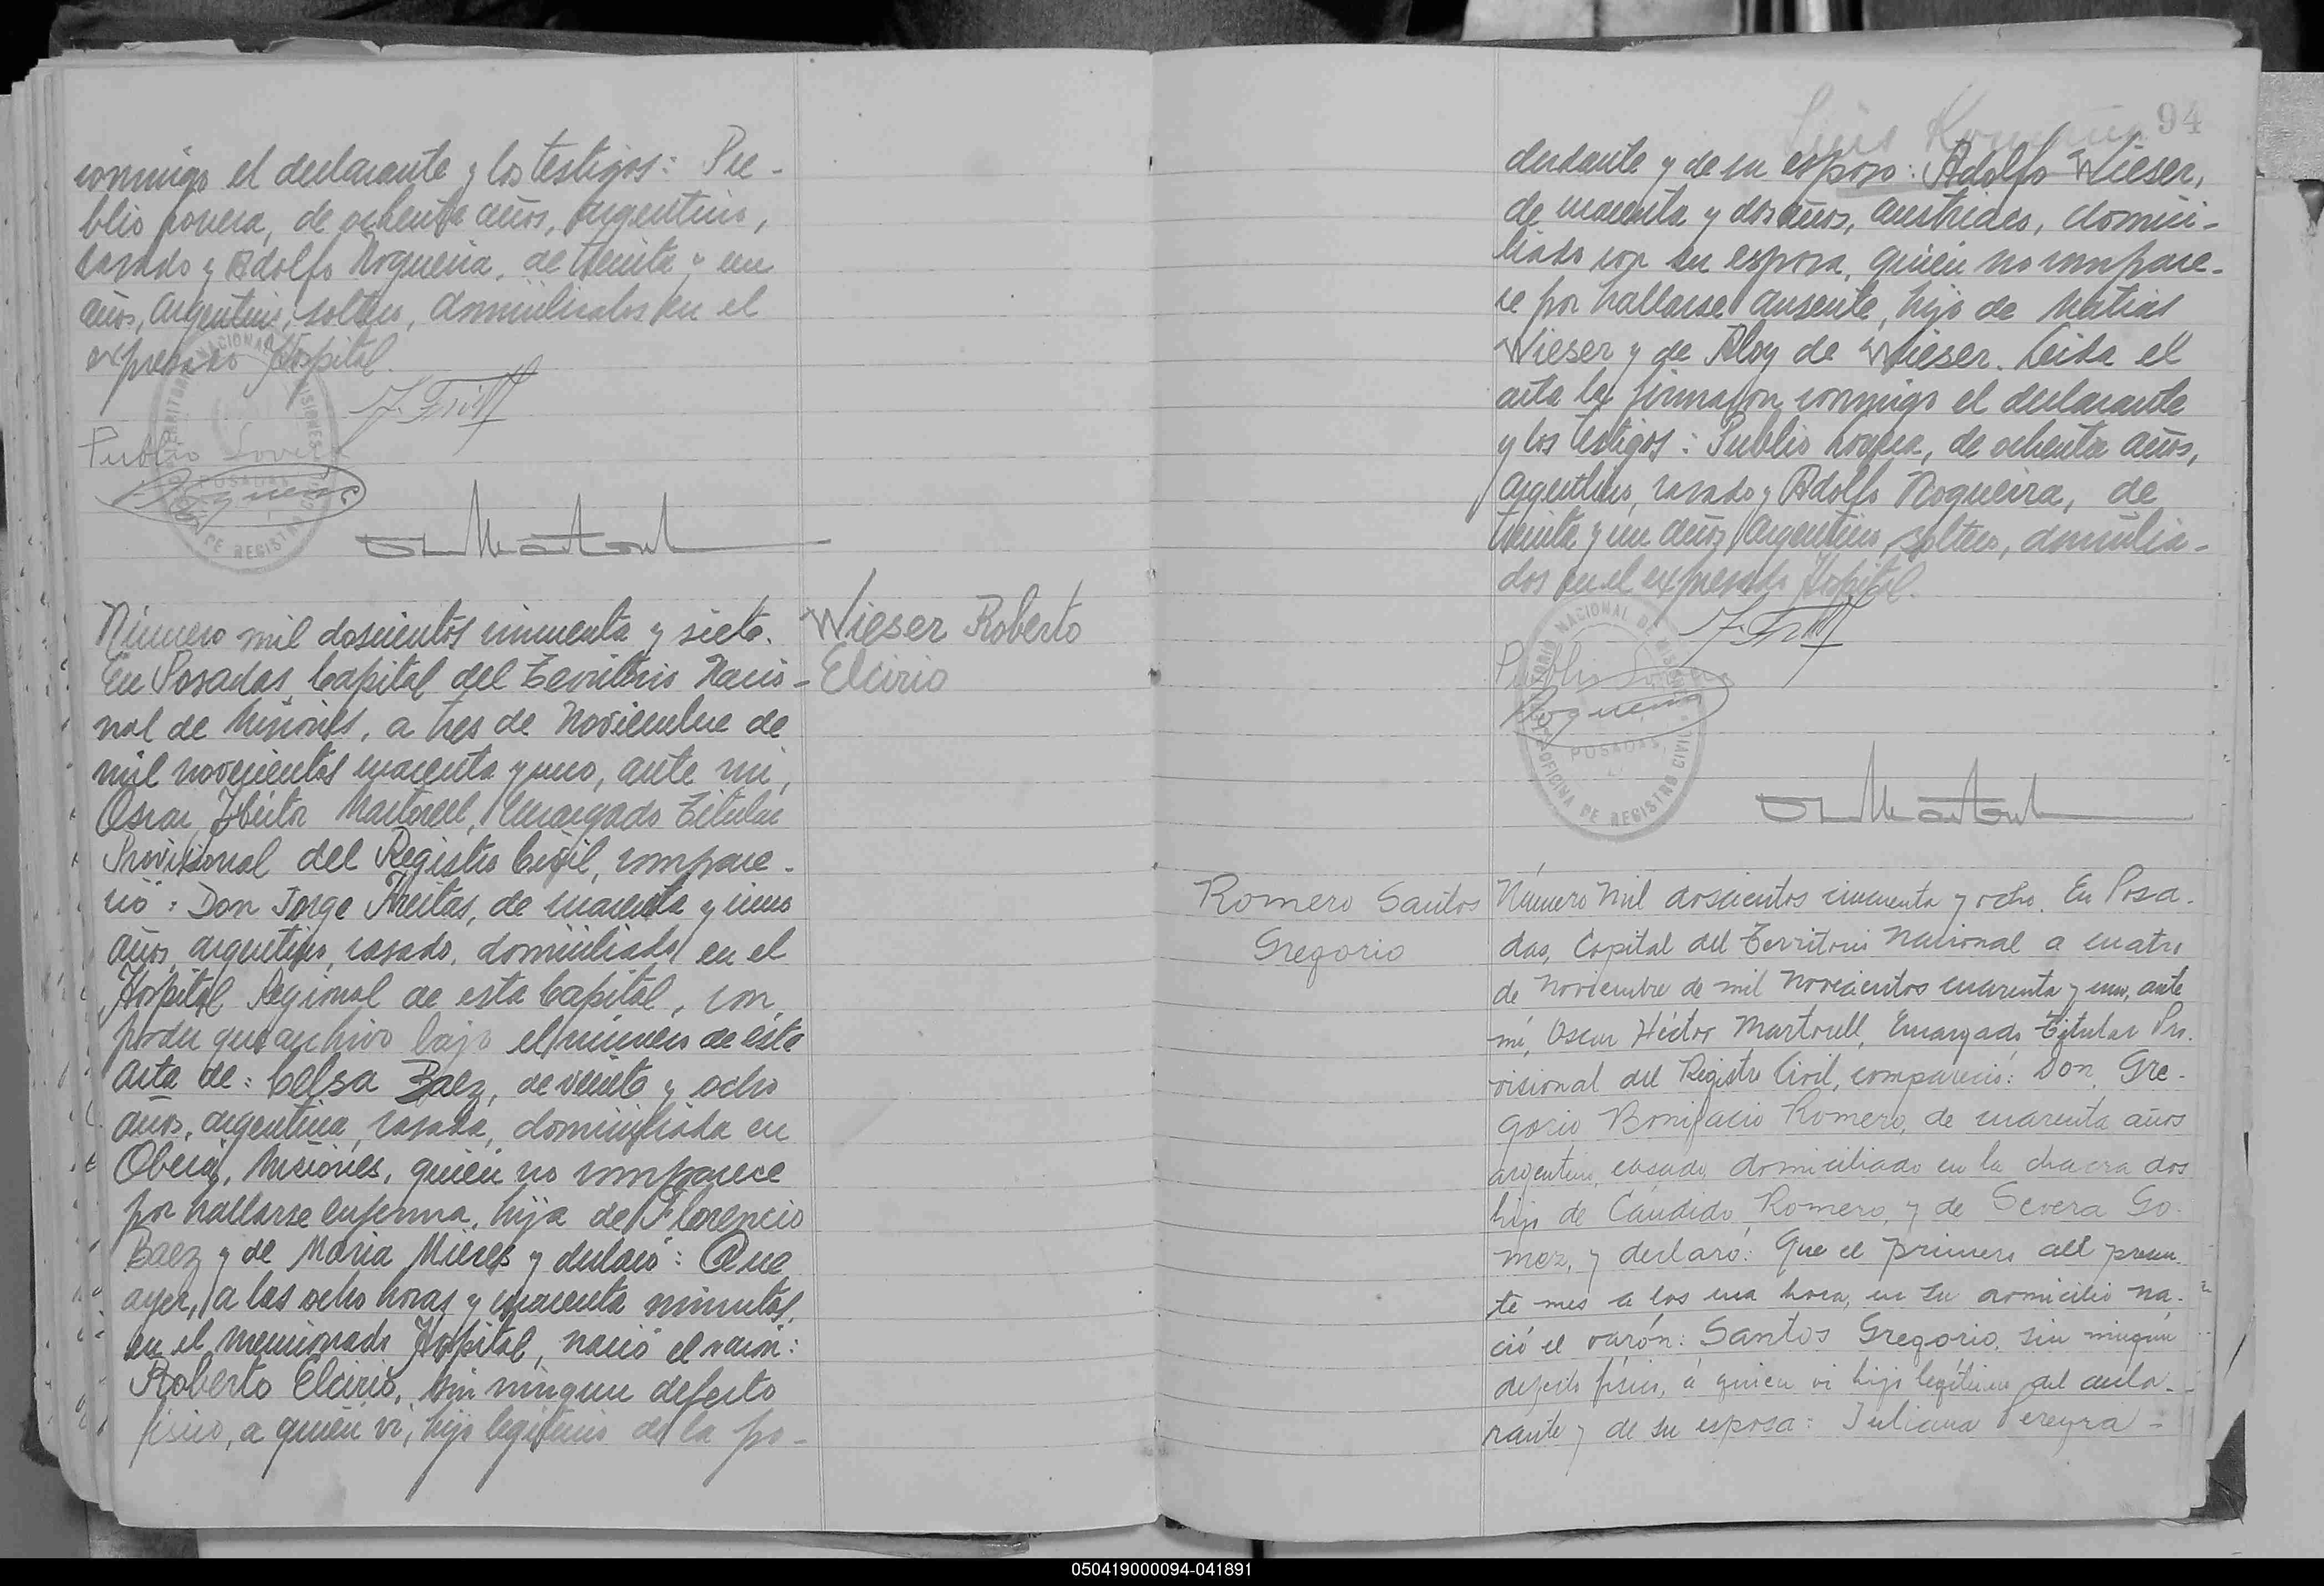 conmigo el declarante y los testigos: Pu-
blio Lovera, de ochenta años, argentino,
casado y Adolfo Nogueira, de treinta y un
años, argentino, soltero, domiciliados en el
expresado Hospital.
J. Freit
Publio Lovera
Nogueira
Número mil doscientos cincuenta y siete.
En Posadas, Capital del Territorio Nacio-
nal de Misiones, a tres de Noviembre de
mil novecientos cuarenta y uno, ante mi,
Oscar Héctor Martorell, Encargado Titular
Provisional del Registro Civil, compare-
ció: Don Jorge Freitas, de cuarenta y cinco
años, argentino, casado, domiciliado en el
Hospital Regional de esta Capital, con
poder que archivo bajo el número de esta
acta de: Celsa Baez, de veinte y ocho
años, argentina, casada, domiciliada en
Oberá, Misiones, quién no comparece
por hallarse enferma, hija de Florencio
Baez y de Maria Mieres y declaró: Que
ayer, a las ocho horas y cuarenta minutos,
en el mencionado Hospital, nació el varón:
Roberto Elcirio, sin ningun defecto
físico, a quién vi, hijo legítimo de la po-
Wieser Roberto
Elcirio
94
derdante y de su esposo: Adolfo Wieser,
de cuarenta y dos años, austriaco, domici-
liado con su esposa, quién no compare-
ce por hallarse ausente, hijo de Matias
Wieser y de Aloy de Wieser. Leida el
acta la firmaron conmigo el declarante
y los testigos: Publio Lovera, de ochenta años,
argentino, casado y Adolfo Nogueira, de
treinta y un años, argentino, soltero, domicilia-
dos en el expresado Hospital.
TERRITORIO NACIONAL DE MISIONES
POSADAS
OFICINA DE REGISTRO CIVIL
Publio Lovera
Nogueira
Romero Santos
Gregorio
Número mil doscientos cincuenta y ocho. En Posa-
das, Capital del Territorio Nacional a cuatro
de Noviembre de mil novecientos cuarenta y uno, ante
mi, Oscar Héctor Martorell, Encargado Titular Pro-
visional del Registro Civil, compareció: Don Gre-
gorio Bonifacio Romero, de cuarenta años
argentino, casado, domiciliado en la chacra dos
hijo de Cándido Romero, y de Severa Go-
mez, y declaró: Que el primero del presen-
te mes a las una hora, en su domicilio na-
ció el varón: Santos Gregorio, sin ningun
defecto físico, a quien vi hijo legítimo del decla-
rante y de su esposa: Juliana Pereyra-
050419000094-041891